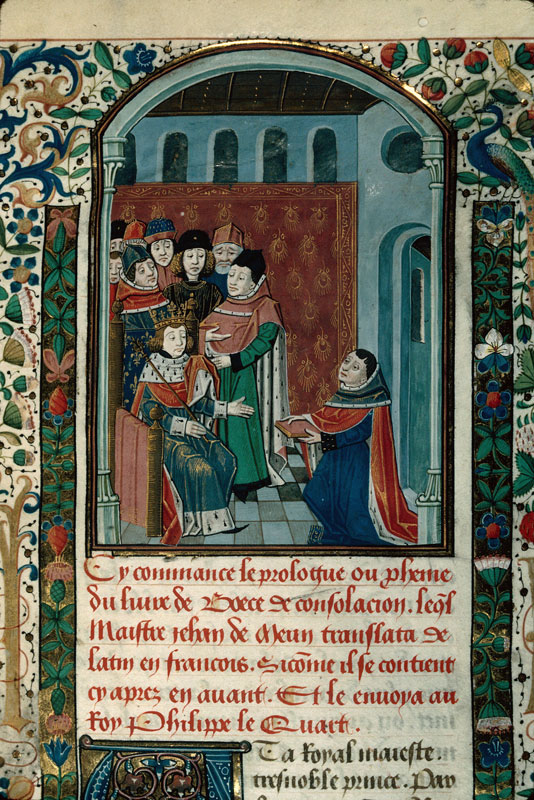 Cy commance le prologue ou proheme
du liure de Boece de consolacion. leql̃
Maistre jehan de Meun translata de
latin en francois. Sicom̃e il se contient
cy aprez en auant. Et le enuoya au
Roy Phelippe le Quart.
Ta Royal maieste
tresnoble prince. Par